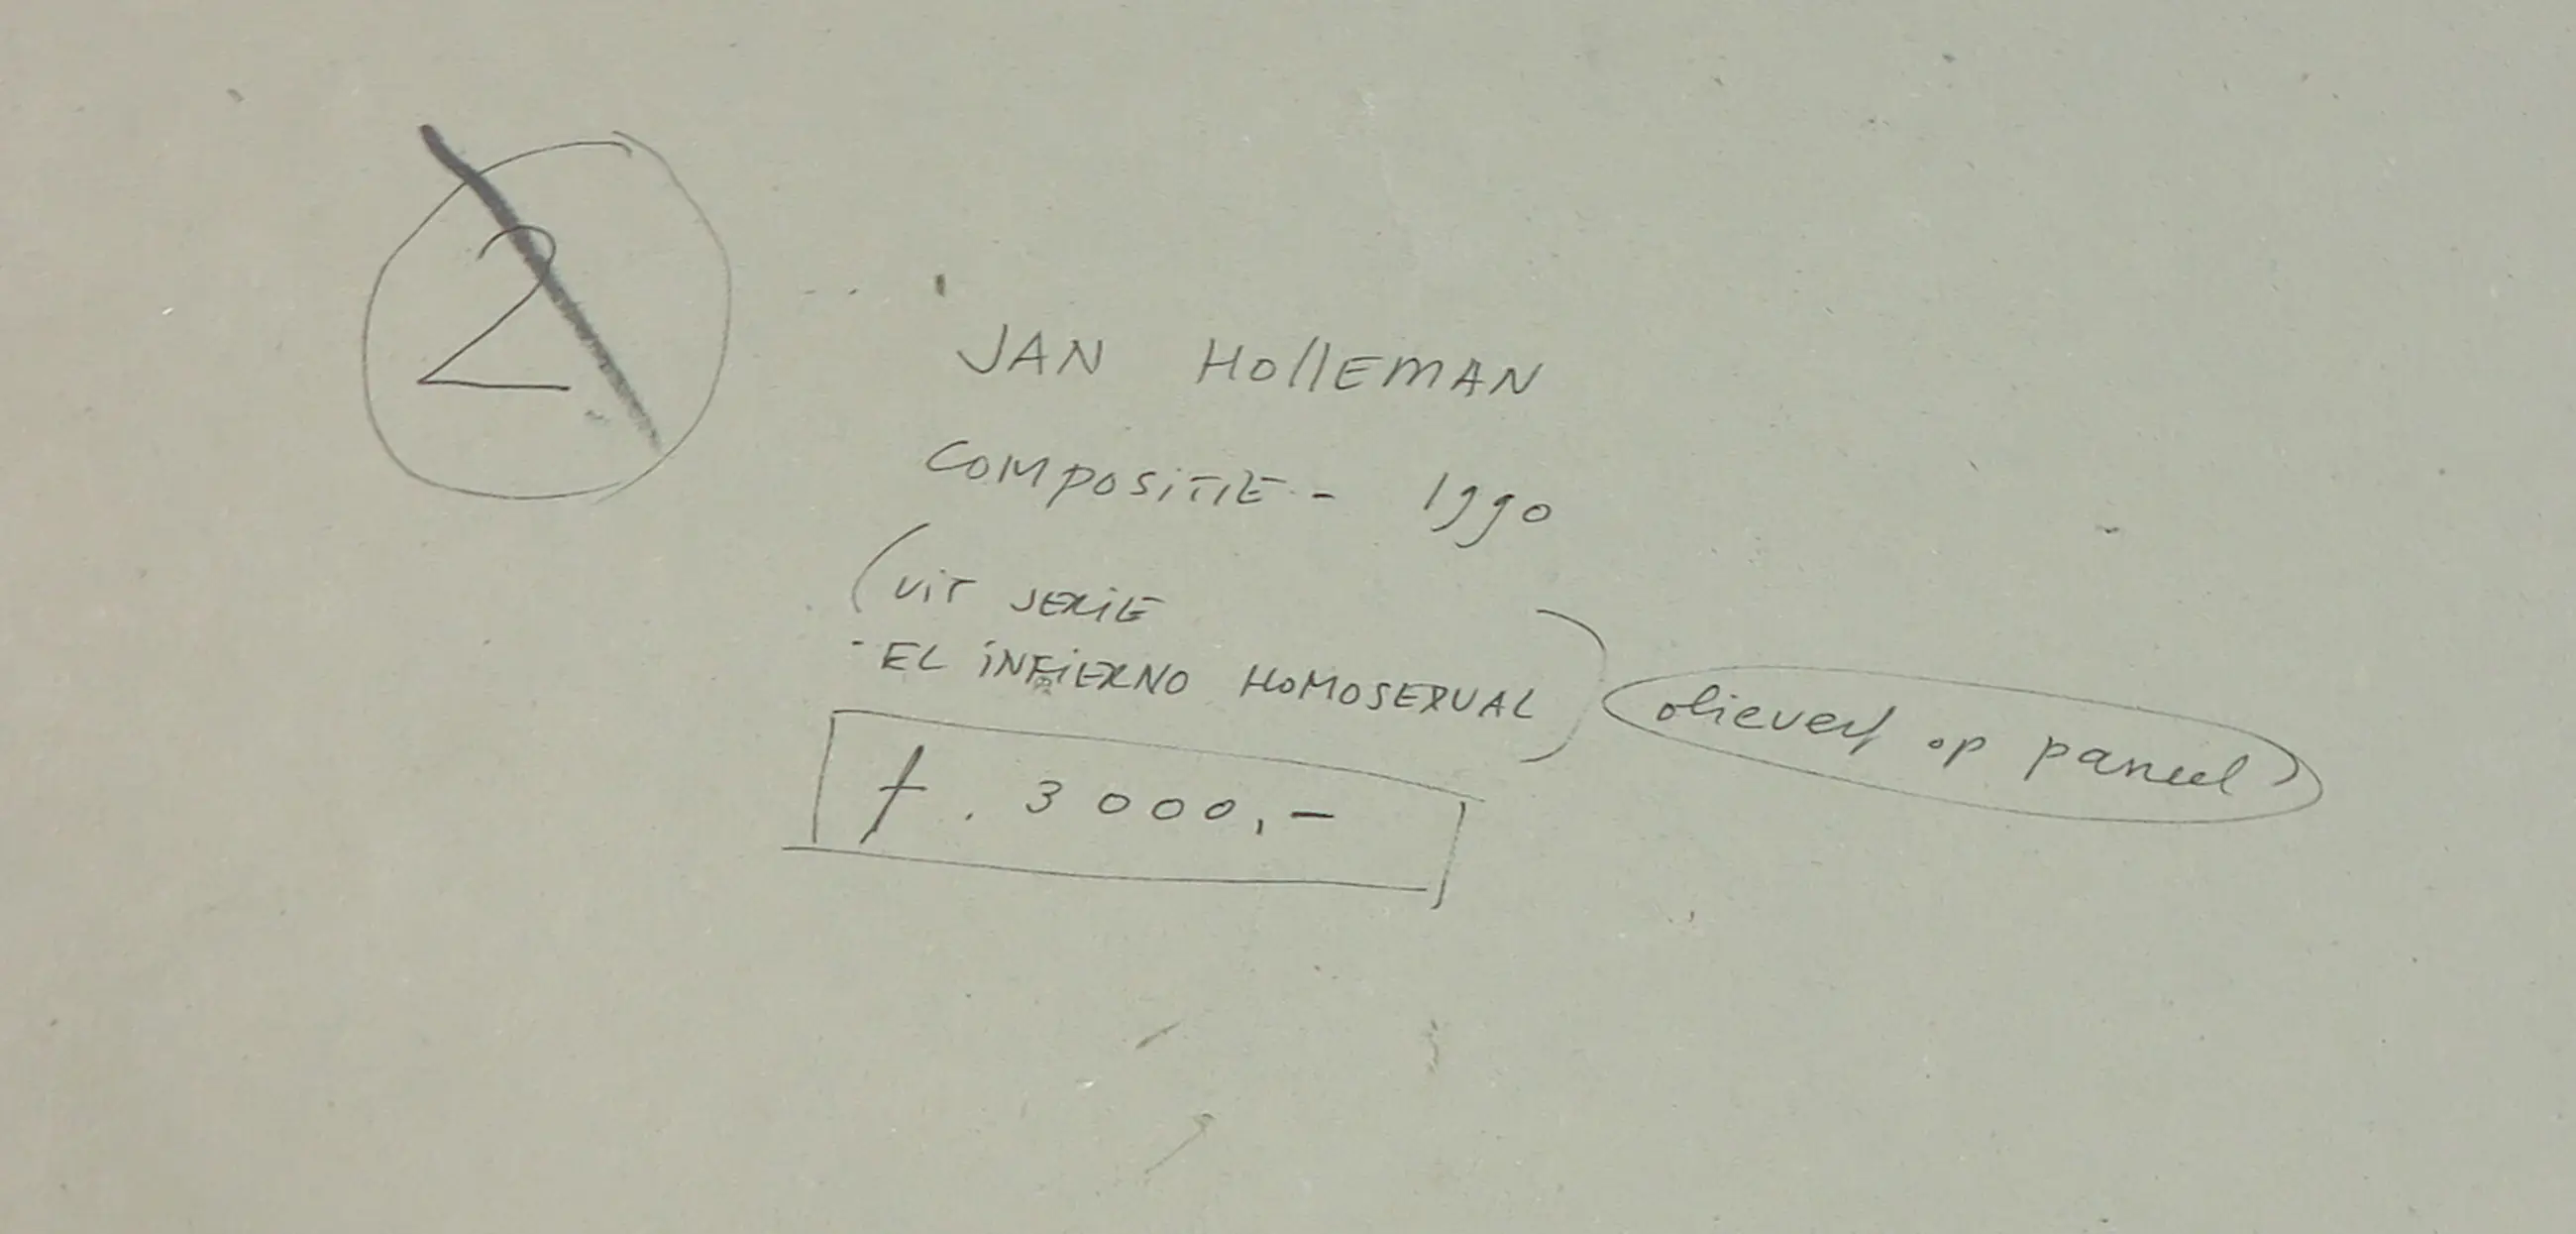 2
JAN HOllEMAN
COMPOSITIE - 1990
(UIT SERIE
- EL iNFiERNO HOMOSEXUAL)
olieverf op paneel
f. 3000,-